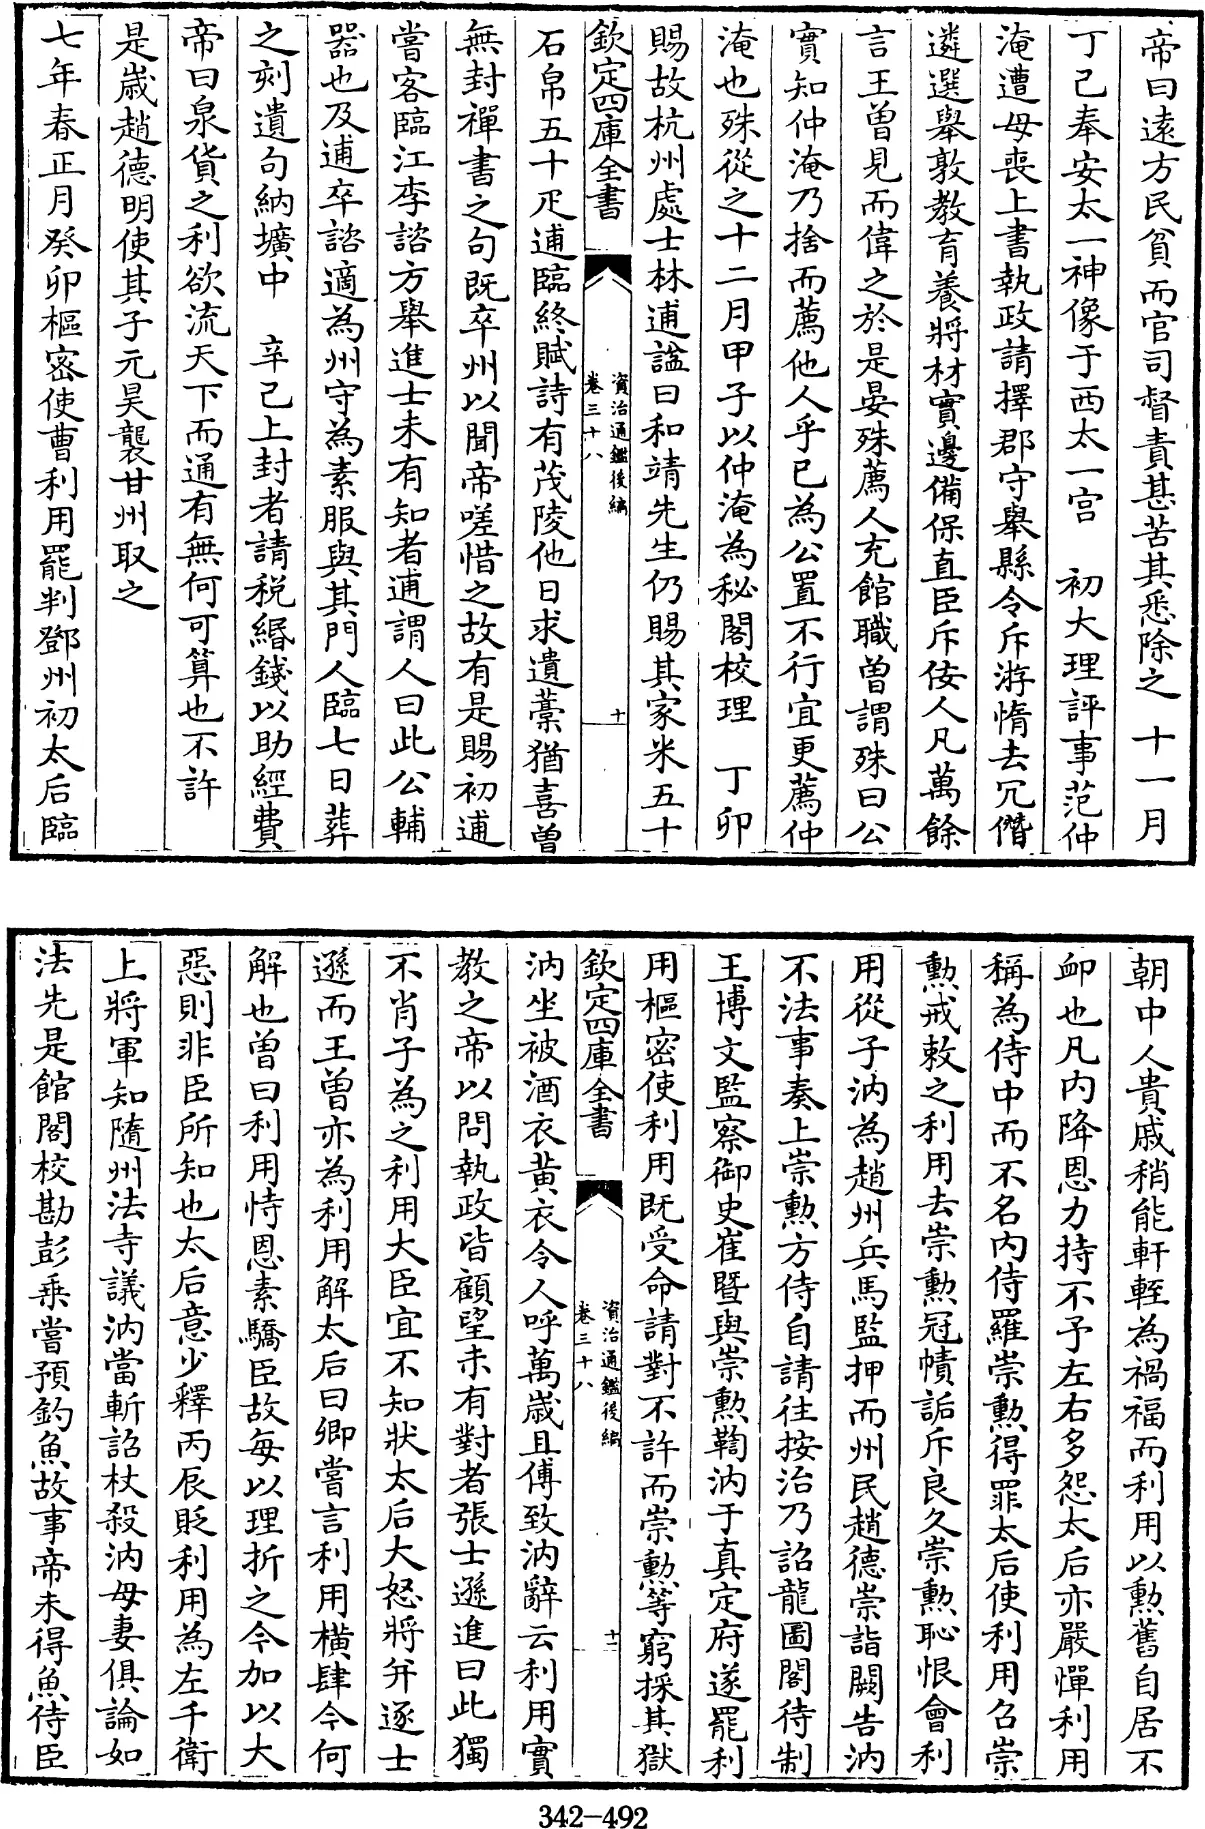 帝曰遠方民貧而官司督責甚苦其悉除之 十一月
丁己奉安太一神像于西太一宫 初大理評事范仲
淹遭母喪上書執政請擇郡守舉縣令斥游惰去冗僭
遴選舉敦教育養將材實邊備保直臣斥佞人凡萬餘
言王曽見而偉之於是晏殊薦人充館職曽謂殊曰公
實知仲淹乃捨而薦他人乎已為公置不行宜更薦仲
淹也殊從之十二月甲子以仲淹為秘閣校理 丁卯
賜故杭州處士林逋諡曰和靖先生仍賜其家米五十
欽定四庫全書
資治通鑑後編
卷三十八
十
石帛五十疋逋臨終賦詩有茂陵他日求遺藁猶喜曽
無封禪書之句既卒州以聞帝嗟惜之故有是賜初逋
嘗客臨江李諮方舉進士未有知者逋謂人曰此公輔
器也及逋卒諮適為州守為素服與其門人臨七日葬
之刻遺句納壙中 辛己上封者請税緡錢以助經費
帝曰泉貨之利欲流天下而通有無何可算也不許
是嵗趙德明使其子元昊襲甘州取之
七年春正月癸卯樞密使曹利用罷判鄧州初太后臨
朝中人貴戚稍能軒輊為禍福而利用以勲舊自居不
衈也凡内降恩力持不予左右多怨太后亦嚴憚利用
稱為侍中而不名内侍羅崇勲得罪太后使利用召崇
勲戒敕之利用去崇勲冠幘詬斥良久崇勲恥恨會利
用從子汭為趙州兵馬監押而州民趙德崇詣闕告汭
不法事奏上崇勲方侍自請往按治乃詔龍圖閣待制
王博文監察御史崔暨與崇勲鞫汭于真定府遂罷利
用樞密使利用既受命請對不許而崇勲等窮探其獄
欽定四庫全書
資治通鑑後編
卷三十八
十一
汭坐被酒衣黄衣令人呼萬嵗且傅致汭辭云利用實
教之帝以問執政皆顧望未有對者張士遜進曰此獨
不肖子為之利用大臣宜不知狀太后大怒將并逐士
遜而王曽亦為利用解太后曰卿嘗言利用横肆今何
解也曽曰利用恃恩素驕臣故每以理折之今加以大
惡則非臣所知也太后意少釋丙辰貶利用為左千衛
上將軍知隨州法寺議汭當斬詔杖殺汭母妻俱論如
法先是館閣校勘彭乗嘗預釣魚故事帝未得魚侍臣
342-492